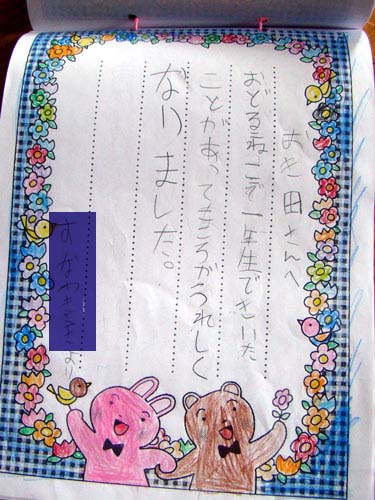 田さんへ
おどるねこで一年生できいた
ことがあって ころがうれしく
なりました。
より